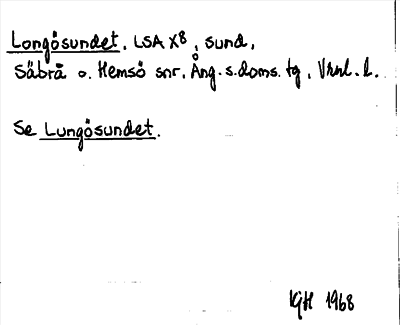 Longösundet, LSA X8, sund,
Säbrå o. Hemsö snr, Ång. s. doms. tg, Vnnl. l.
Se Lungösundet.
KGH 1968